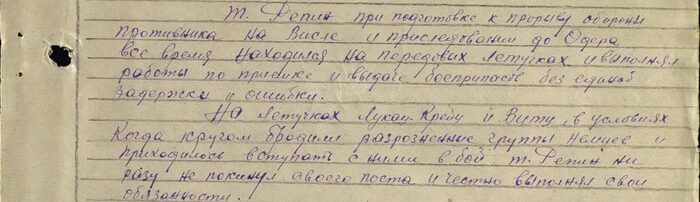 т. Репин при подготовке к прорыву обороны
противника на Висле и приследовании до Одера
все время находился на передовых летучках и выполнял
работы по приемке и выдаче боеприпасов без единой
задержки и ошибки.
На летучках Лукау, Кребу и Виту, в условиях
Когда кругом бродили разрозненные группы Немцев и
приходилось вступать с ними в бой т. Репин ни
разу не покинул своего поста и честно выполнял свои
обязанности.